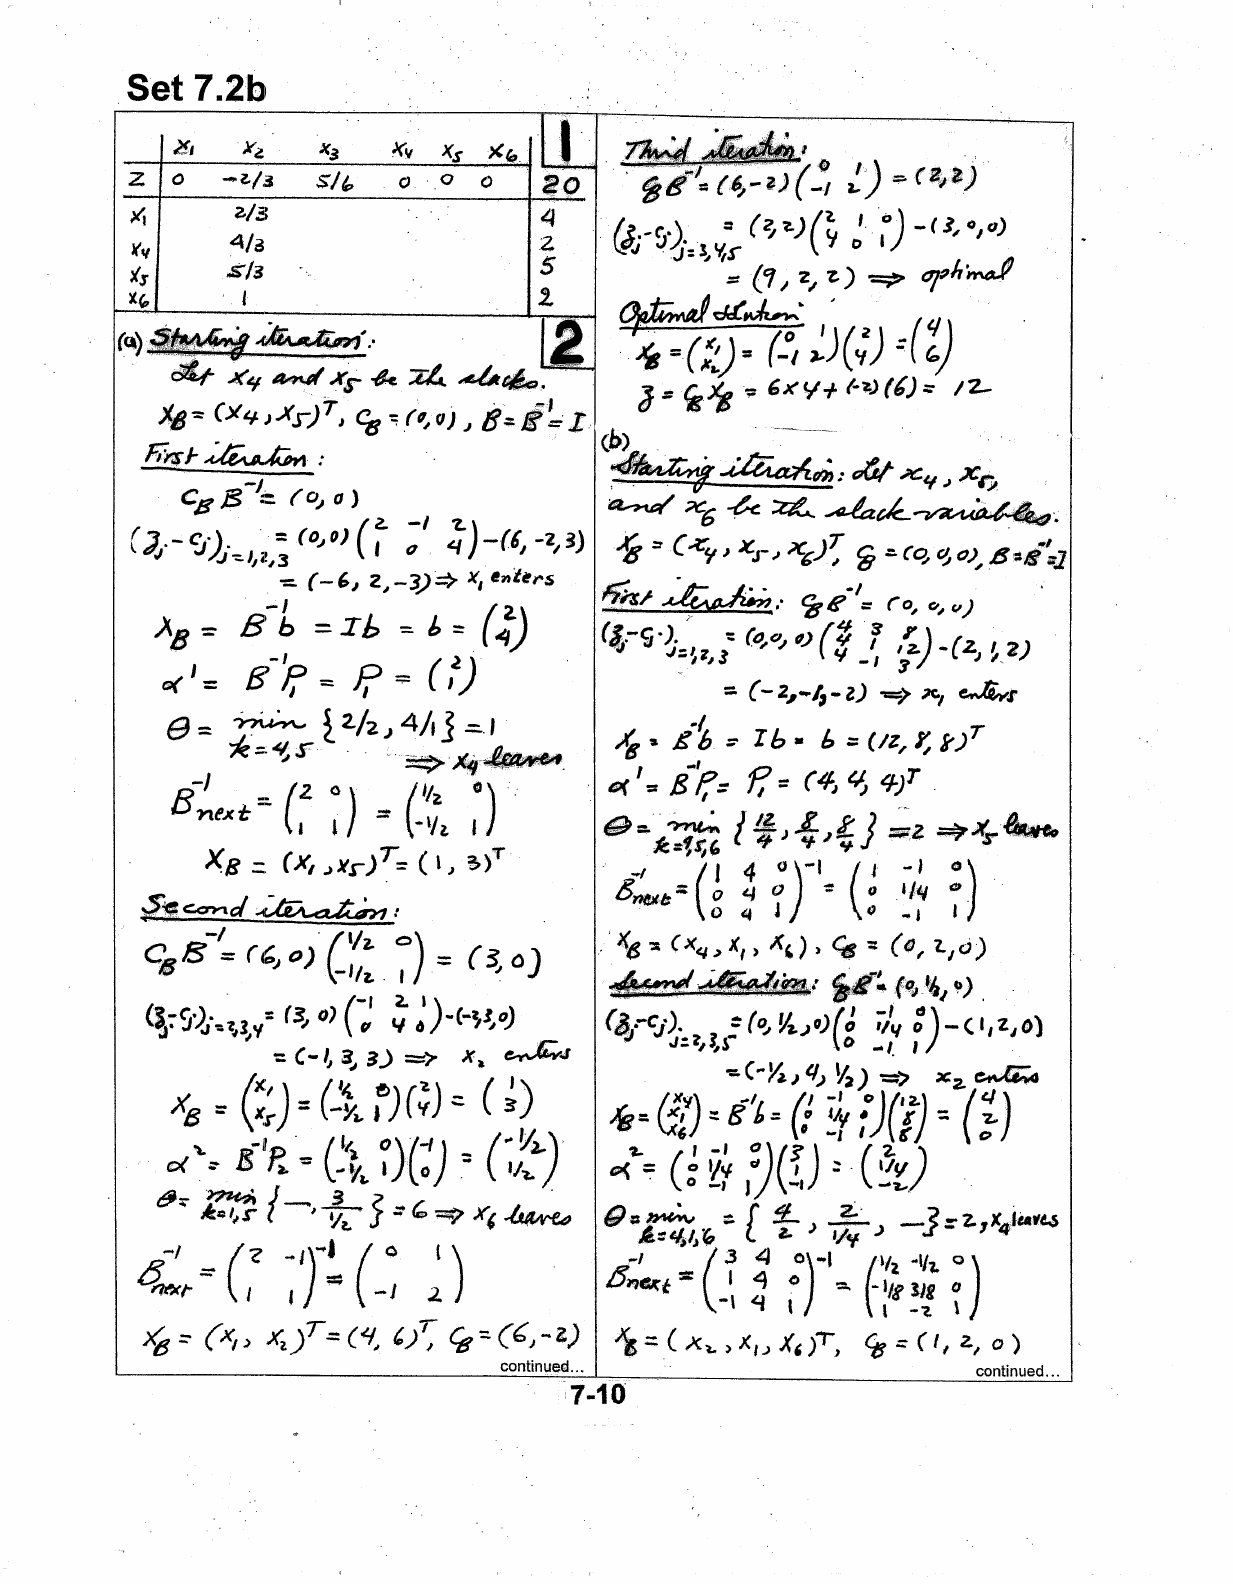 Set 7.2b
1
x1 x2 x3 x4 x5 x6
Z 0 -2/3 5/6 0 0 0 20
x1 2/3 4
x4 4/3 2
x5 5/3 5
x6 1 2
2
(a) Starting iteration:
Let x4 and x5 be the slacks.
XB = (x4, x5)T, CB = (0,0), B = B-1 = I
First iteration:
CB B-1 = (0, 0)
(zj - cj)j=1,2,3 = (0,0) (2 -1 2 / 1 0 4) - (6, -2, 3)
= (-6, 2, -3) ⇒ x1 enters
XB = B-1 b = Ib = b = (2 / 4)
α1 = B-1 P1 = P1 = (2 / 1)
θ = min k=4,5 {2/2, 4/1} = 1
⇒ x4 leaves
B-1 next = (2 0 / 1 1) = (1/2 0 / -1/2 1)
XB = (x1, x5)T = (1, 3)T
Second iteration:
CB B-1 = (6, 0) (1/2 0 / -1/2 1) = (3, 0)
(zj - cj)j=2,3,4 = (3, 0) (-1 2 1 / 0 4 0) - (-2,3,0)
= (-1, 3, 3) ⇒ x2 enters
XB = (x1 / x5) = (1/2 0 / -1/2 1) (2 / 4) = (1 / 3)
α2 = B-1 P2 = (1/2 0 / -1/2 1) (-1 / 0) = (-1/2 / 1/2)
θ = min k=1,5 {—, 3 / 1/2} = 6 ⇒ x5 leaves
B-1 next = (2 -1 / 1 1)-1 = (0 1 / -1 2)
XB = (x1, x2)T = (4, 6)T, CB = (6, -2)
continued...
Third iteration:
CB B-1 = (6, -2) (0 1 / -1 2) = (2, 2)
(zj - cj)j=3,4,5 = (2, 2) (2 1 0 / 4 0 1) - (3, 0, 0)
= (9, 2, 2) ⇒ optimal
Optimal solution:
XB = (x1 / x2) = (0 1 / -1 2) (2 / 4) = (4 / 6)
z = CB XB = 6x4 + (-2)(6) = 12
(b)
Starting iteration: Let x4, x5,
and x6 be the slack variables.
XB = (x4, x5, x6)T, CB = (0, 0, 0), B = B-1 = I
First iteration: CB B-1 = (0, 0, 0)
(zj - cj)j=1,2,3 = (0, 0, 0) (4 3 8 / 4 1 12 / 4 -1 3) - (2, 1, 2)
= (-2, -1, -2) ⇒ x1 enters
XB = B-1 b = Ib = b = (12, 8, 8)T
α1 = B-1 P1 = P1 = (4, 4, 4)T
θ = min k=4,5,6 {12/4, 8/4, 8/4} = 2 ⇒ x5 leaves
B-1 next = (1 4 0 / 0 4 0 / 0 4 1)-1 = (1 -1 0 / 0 1/4 0 / 0 -1 1)
XB = (x4, x1, x6), CB = (0, 2, 0)
Second iteration: CB B-1 = (0, 1/2, 0)
(zj - cj)j=2,3,5 = (0, 1/2, 0) (1 -1 0 / 0 1/4 0 / 0 -1 1) - (1, 2, 0)
= (-1/2, 4, 1/2) ⇒ x2 enters
XB = (x4 / x1 / x6) = B-1 b = (1 -1 0 / 0 1/4 0 / 0 -1 1) (12 / 8 / 8) = (4 / 2 / 0)
α2 = (1 -1 0 / 0 1/4 0 / 0 -1 1) (3 / 1 / -1) = (2 / 1/4 / -2)
θ = min k=4,1,6 = {4/2, 2 / 1/4, —} = 2, x4 leaves
B-1 next = (3 4 0 / 1 4 0 / -1 4 1)-1 = (1/2 -1/2 0 / -1/8 3/8 0 / 1 -2 1)
XB = (x2, x1, x6)T, CB = (1, 2, 0)
continued...
7-10